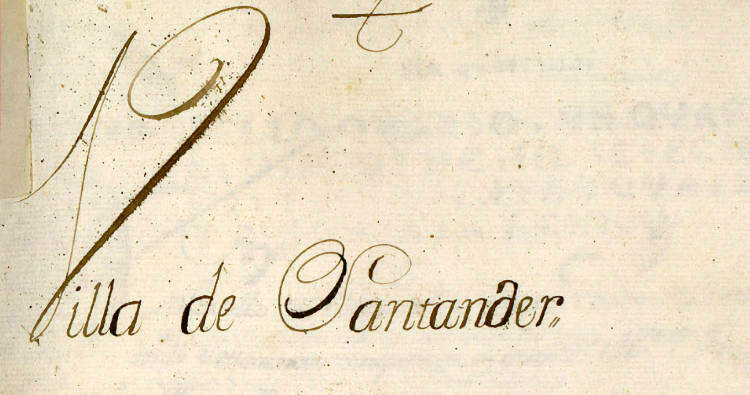 Villa de Santander„